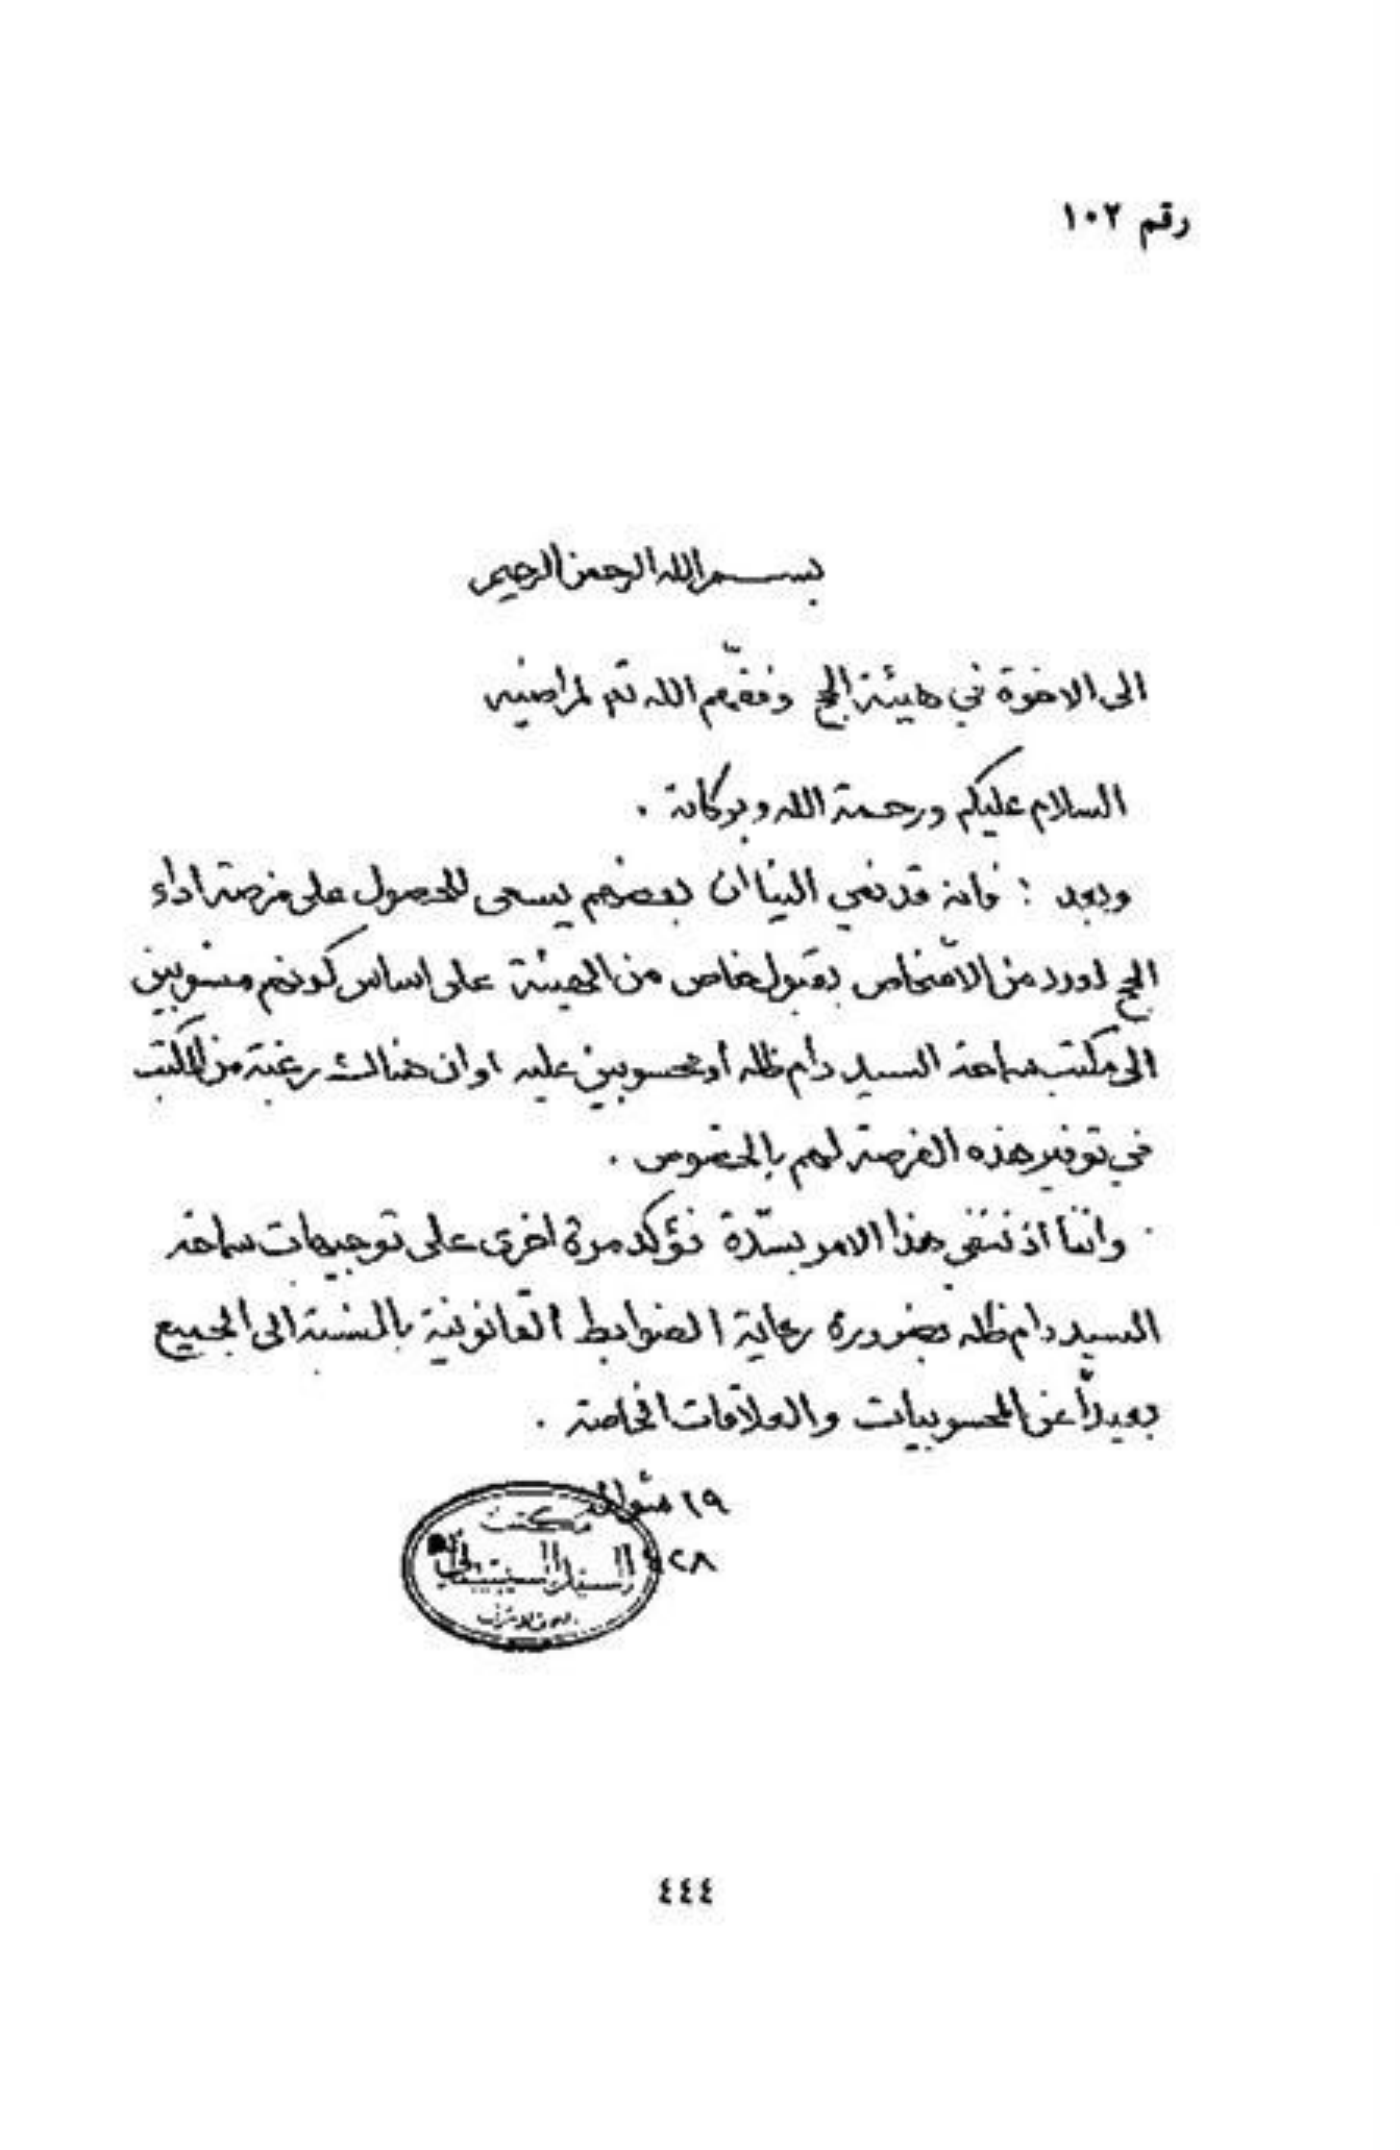 رقم ١٠٢
بسم الله الرحمن الرحيم
الى الاخوة في هيئة الحج وفقهم الله تع لمراضيه
السلام عليكم ورحمة الله وبركاته .
وبعد : فانه قد نمي الينا ان بعضهم يسعى للحصول على فرصة اداء
الحج لعدد من الاشخاص بقبول خاص من الهيئة على اساس كونهم منسوبين
الى مكتب سماحة السيد دام ظله أو محسوبين عليه او ان هناك رغبة من المكتب
في توفير هذه الفرصة لهم بالخصوص .
واننا اذ ننفي هذا الامر بشدّة نؤكد مرة اخرى على توجيهات سماحة
السيد دام ظله بضرورة رعاية الضوابط القانونية بالنسبة الى الجميع
بعيداً عن المحسوبيات والعلاقات الخاصة .
٢٩ شوال
٤٢٨
مكتب
السيد السيستاني
النجف الاشرف
٤٤٤